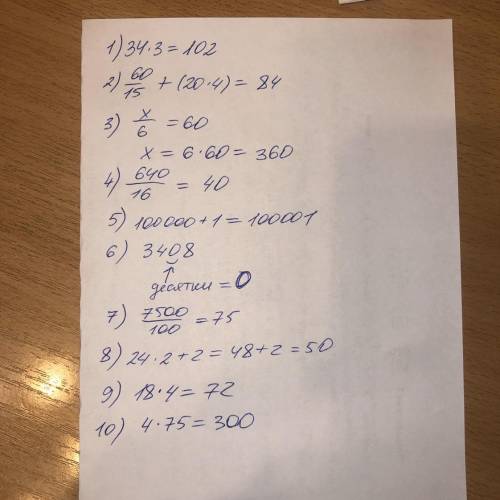 1) 34·3=102
2) 60/15 + (20·4) = 84
3) x/6 = 60
x = 6·60 = 360
4) 640/16 = 40
5) 100000+1=100001
6) 3408
десятки = 0
7) 7500/100 = 75
8) 24·2+2=48+2=50
9) 18·4=72
10) 4·75=300